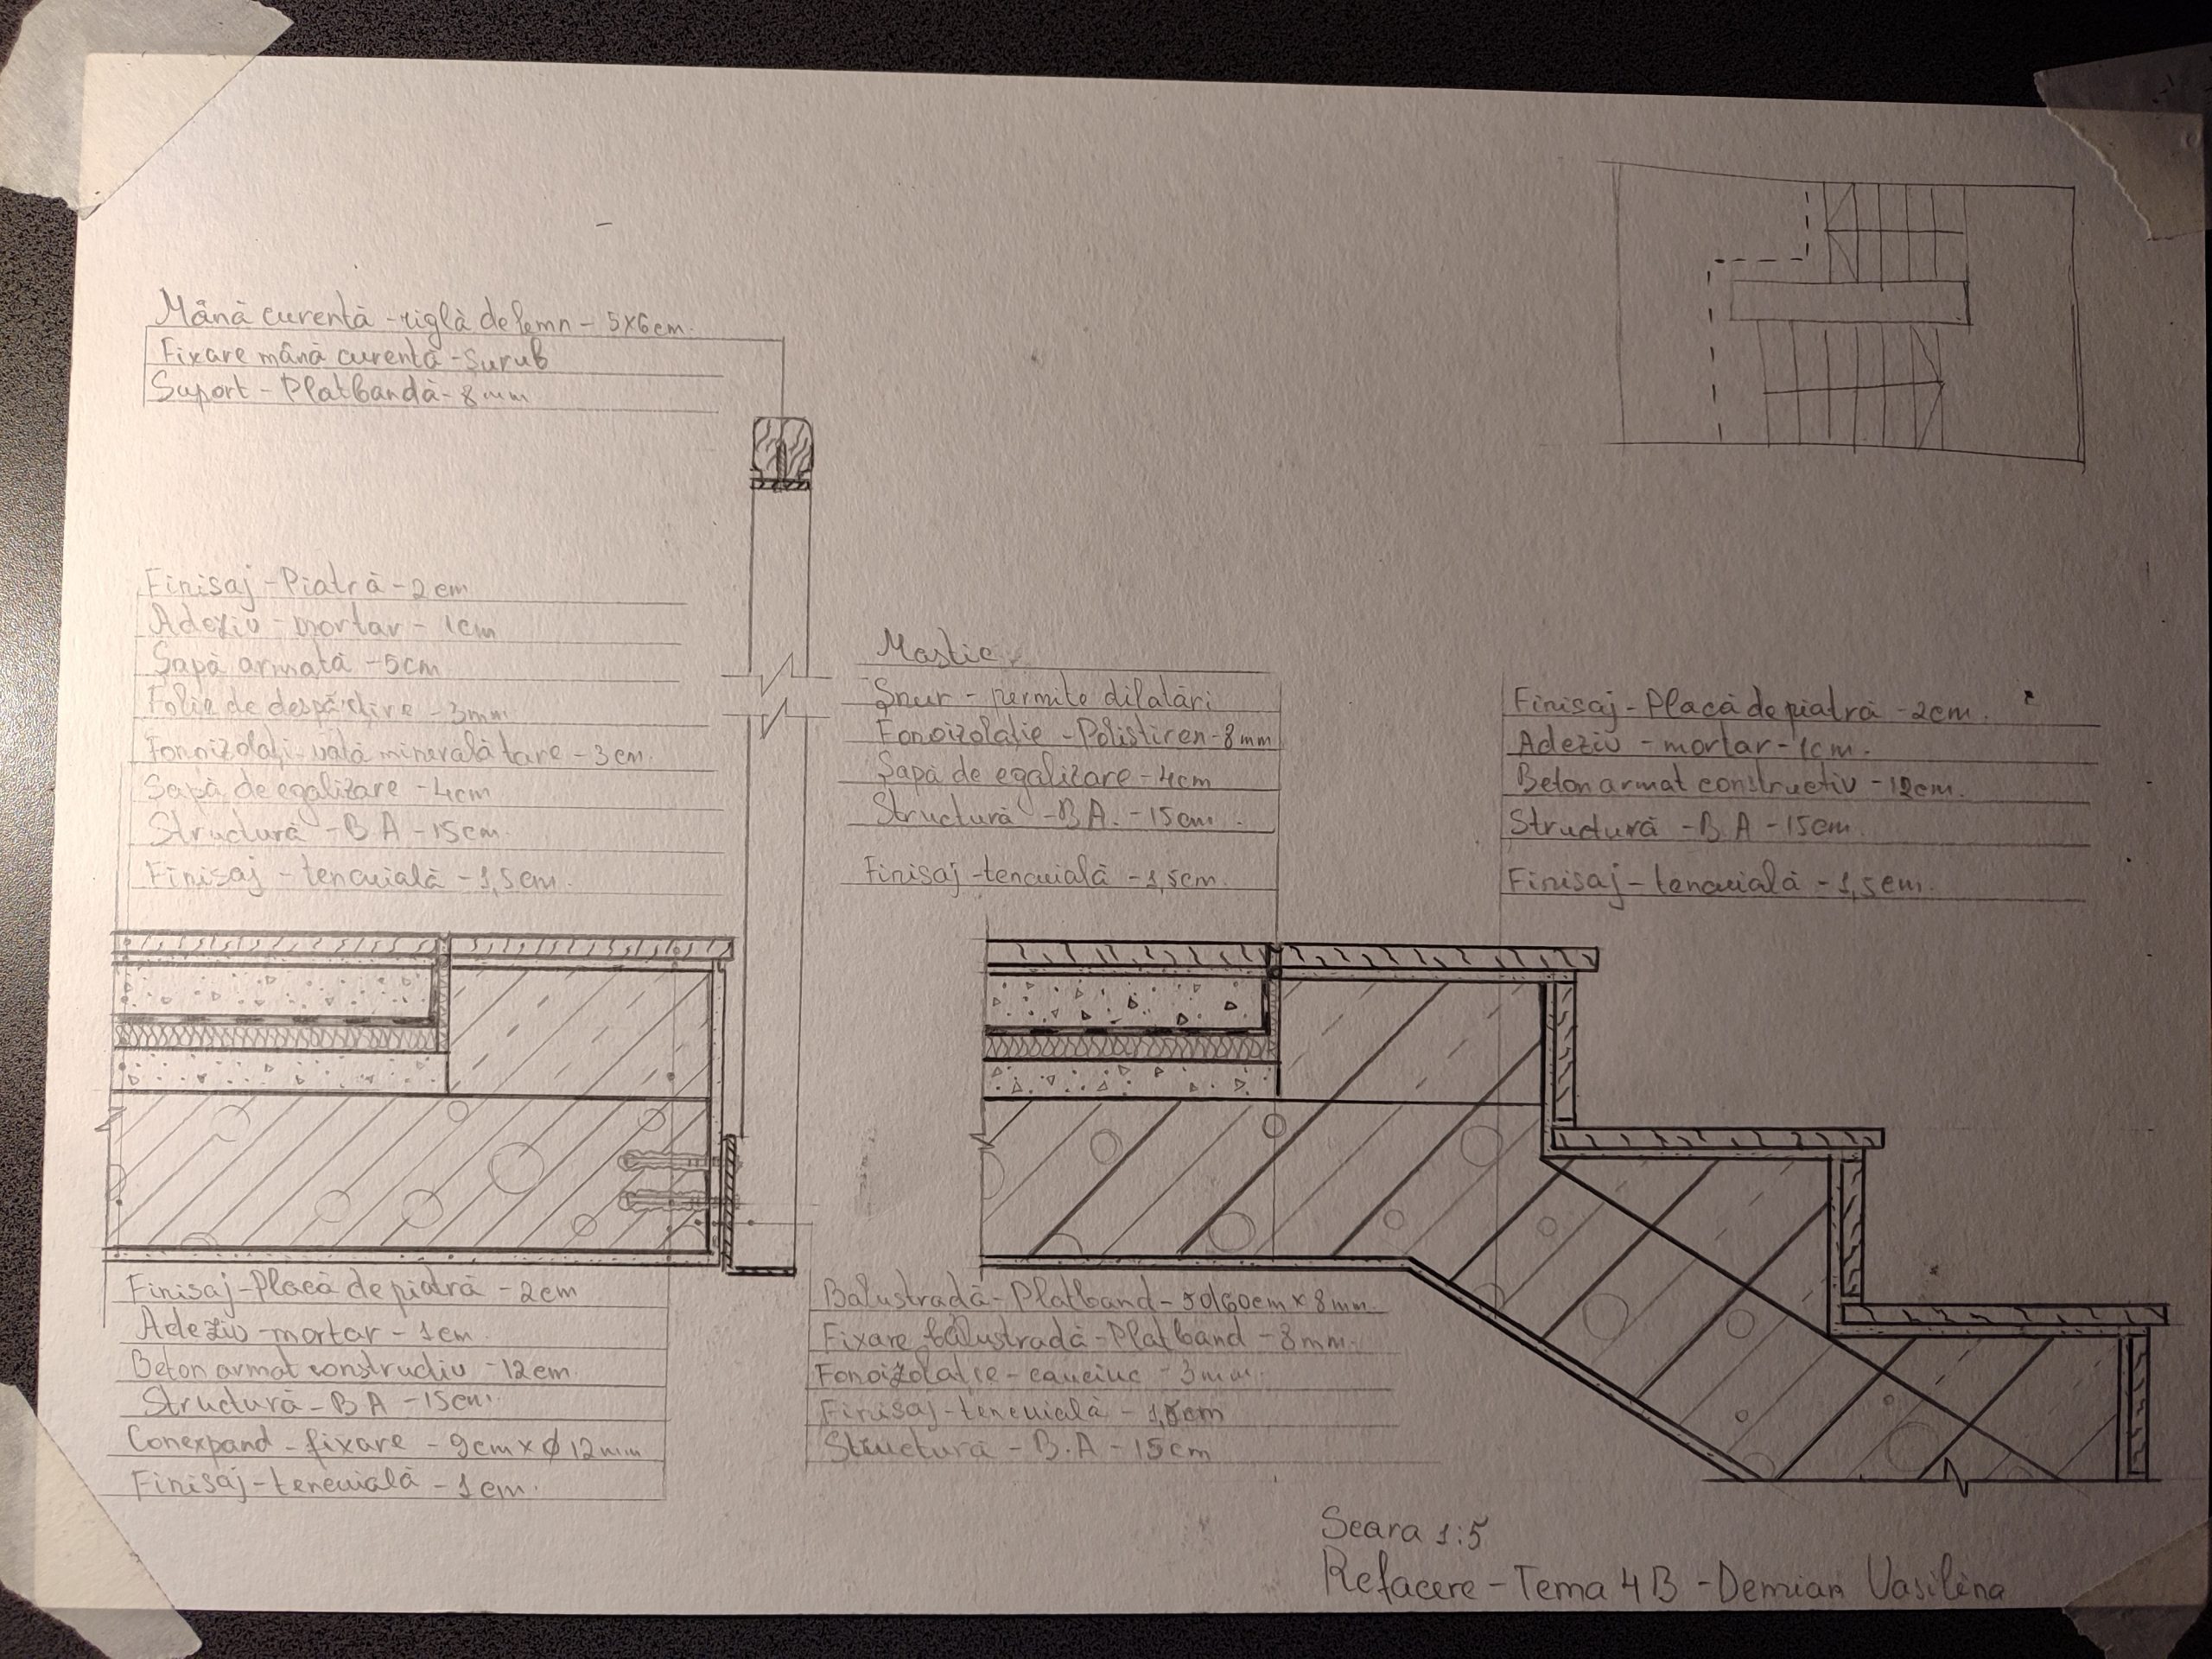 Mână curentă - riglă de lemn - 5x6cm.
Fixare mână curentă - Șurub
Suport - Platbandă - 8mm
Finisaj - Piatră - 2cm
Adeziv - mortar - 1cm
Șapă armată - 5cm
Folie de despărțire - 3mm
Fonoizolați - vată minerală tare - 3cm.
Șapă de egalizare - 4cm
Structură - BA - 15cm.
Finisaj - tencuială - 1,5cm.
Mastic
Șnur - permite dilatări
Fonoizolație - Polistiren - 8mm
Șapă de egalizare - 4cm
Structură - B.A. - 15cm.
Finisaj - tencuială - 1,5cm.
Finisaj - Placă de piatră - 2cm.
Adeziv - mortar - 1cm.
Beton armat constructiv - 12cm.
Structură - B.A - 15cm.
Finisaj - tencuială - 1,5cm.
Finisaj - Placă de piatră - 2cm
Adeziv - mortar - 1cm.
Beton armat constructiv - 12cm.
Structură - BA - 15cm.
Conexpand - fixare - 9cm x ϕ 12mm
Finisaj - tencuială - 1cm.
Balustradă - Platband - x 8mm.
Fixare balustradă - Platband - 8mm.
Fonoizolație - cauciuc - 3mm.
Finisaj - tencuială - 1,5cm
Structură - B.A - 15cm
Scara 1:5
Refacere - Tema 4B - Demian Vasilena